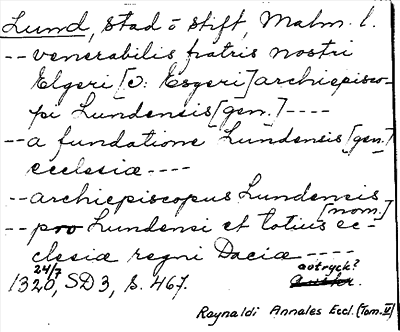 Lund, stad o stift, Malm. l.
-- venerabilis fratris nostri
Elgeri [ɔ: Esgeri] archiepisco-
pi Lundensis [gen.] ----
-- a fundatione Lundensis [gen.]
ecclesiæ ----
-- archiepiscopus Lundensis
[nom.]
-- pro Lundensi et totius ec-
clesiæ regni Daciæ ----
avtryck?
24/7
1320, SD 3, s. 467.
Raynaldi Annales Eccl. (Tom. V)